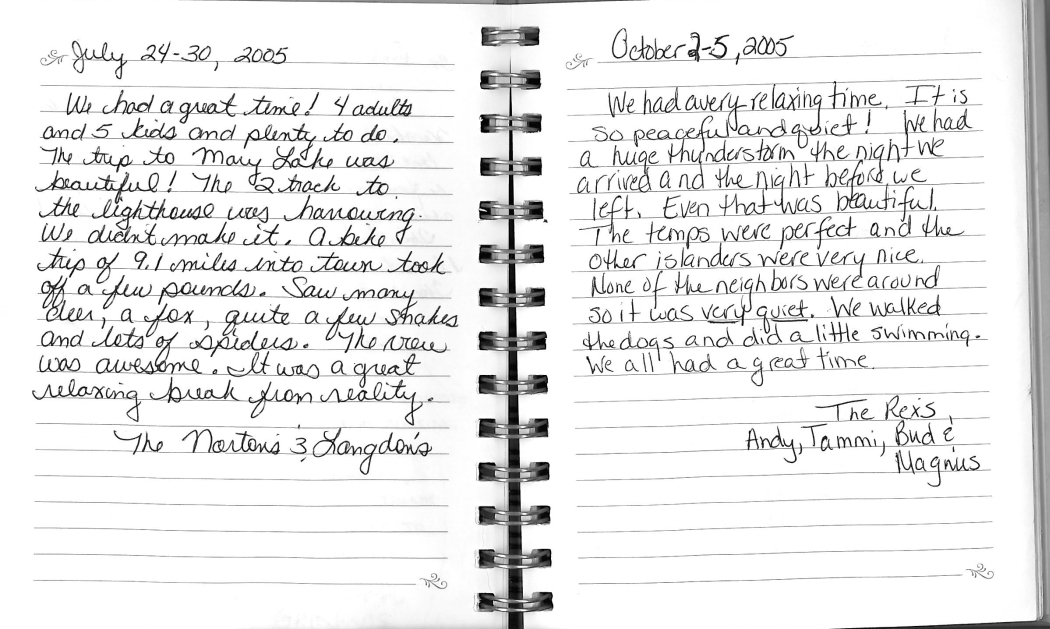 July 24-30, 2005
We had a great time! 4 adults
and 5 kids and plenty to do.
The trip to Mary Lake was
beautiful! The 2 track to
the lighthouse was harrowing.
We didn't make it. A bike
trip of 9.1 miles into town took
off a few pounds. Saw many
deer, a fox, quite a few snakes
and lots of spiders. The view
was awesome. It was a great
relaxing break from reality.
The Norton's & Langdon's
October 2-5, 2005
We had a very relaxing time. It is
so peaceful and quiet! We had
a huge thunderstorm the night we
arrived and the night before we
left. Even that was beautiful.
The temps were perfect and the
other islanders were very nice.
None of the neighbors were around
so it was very quiet. We walked
the dogs and did a little swimming.
We all had a great time.
The Rex's,
Andy, Tammi, Bud &
Magnus